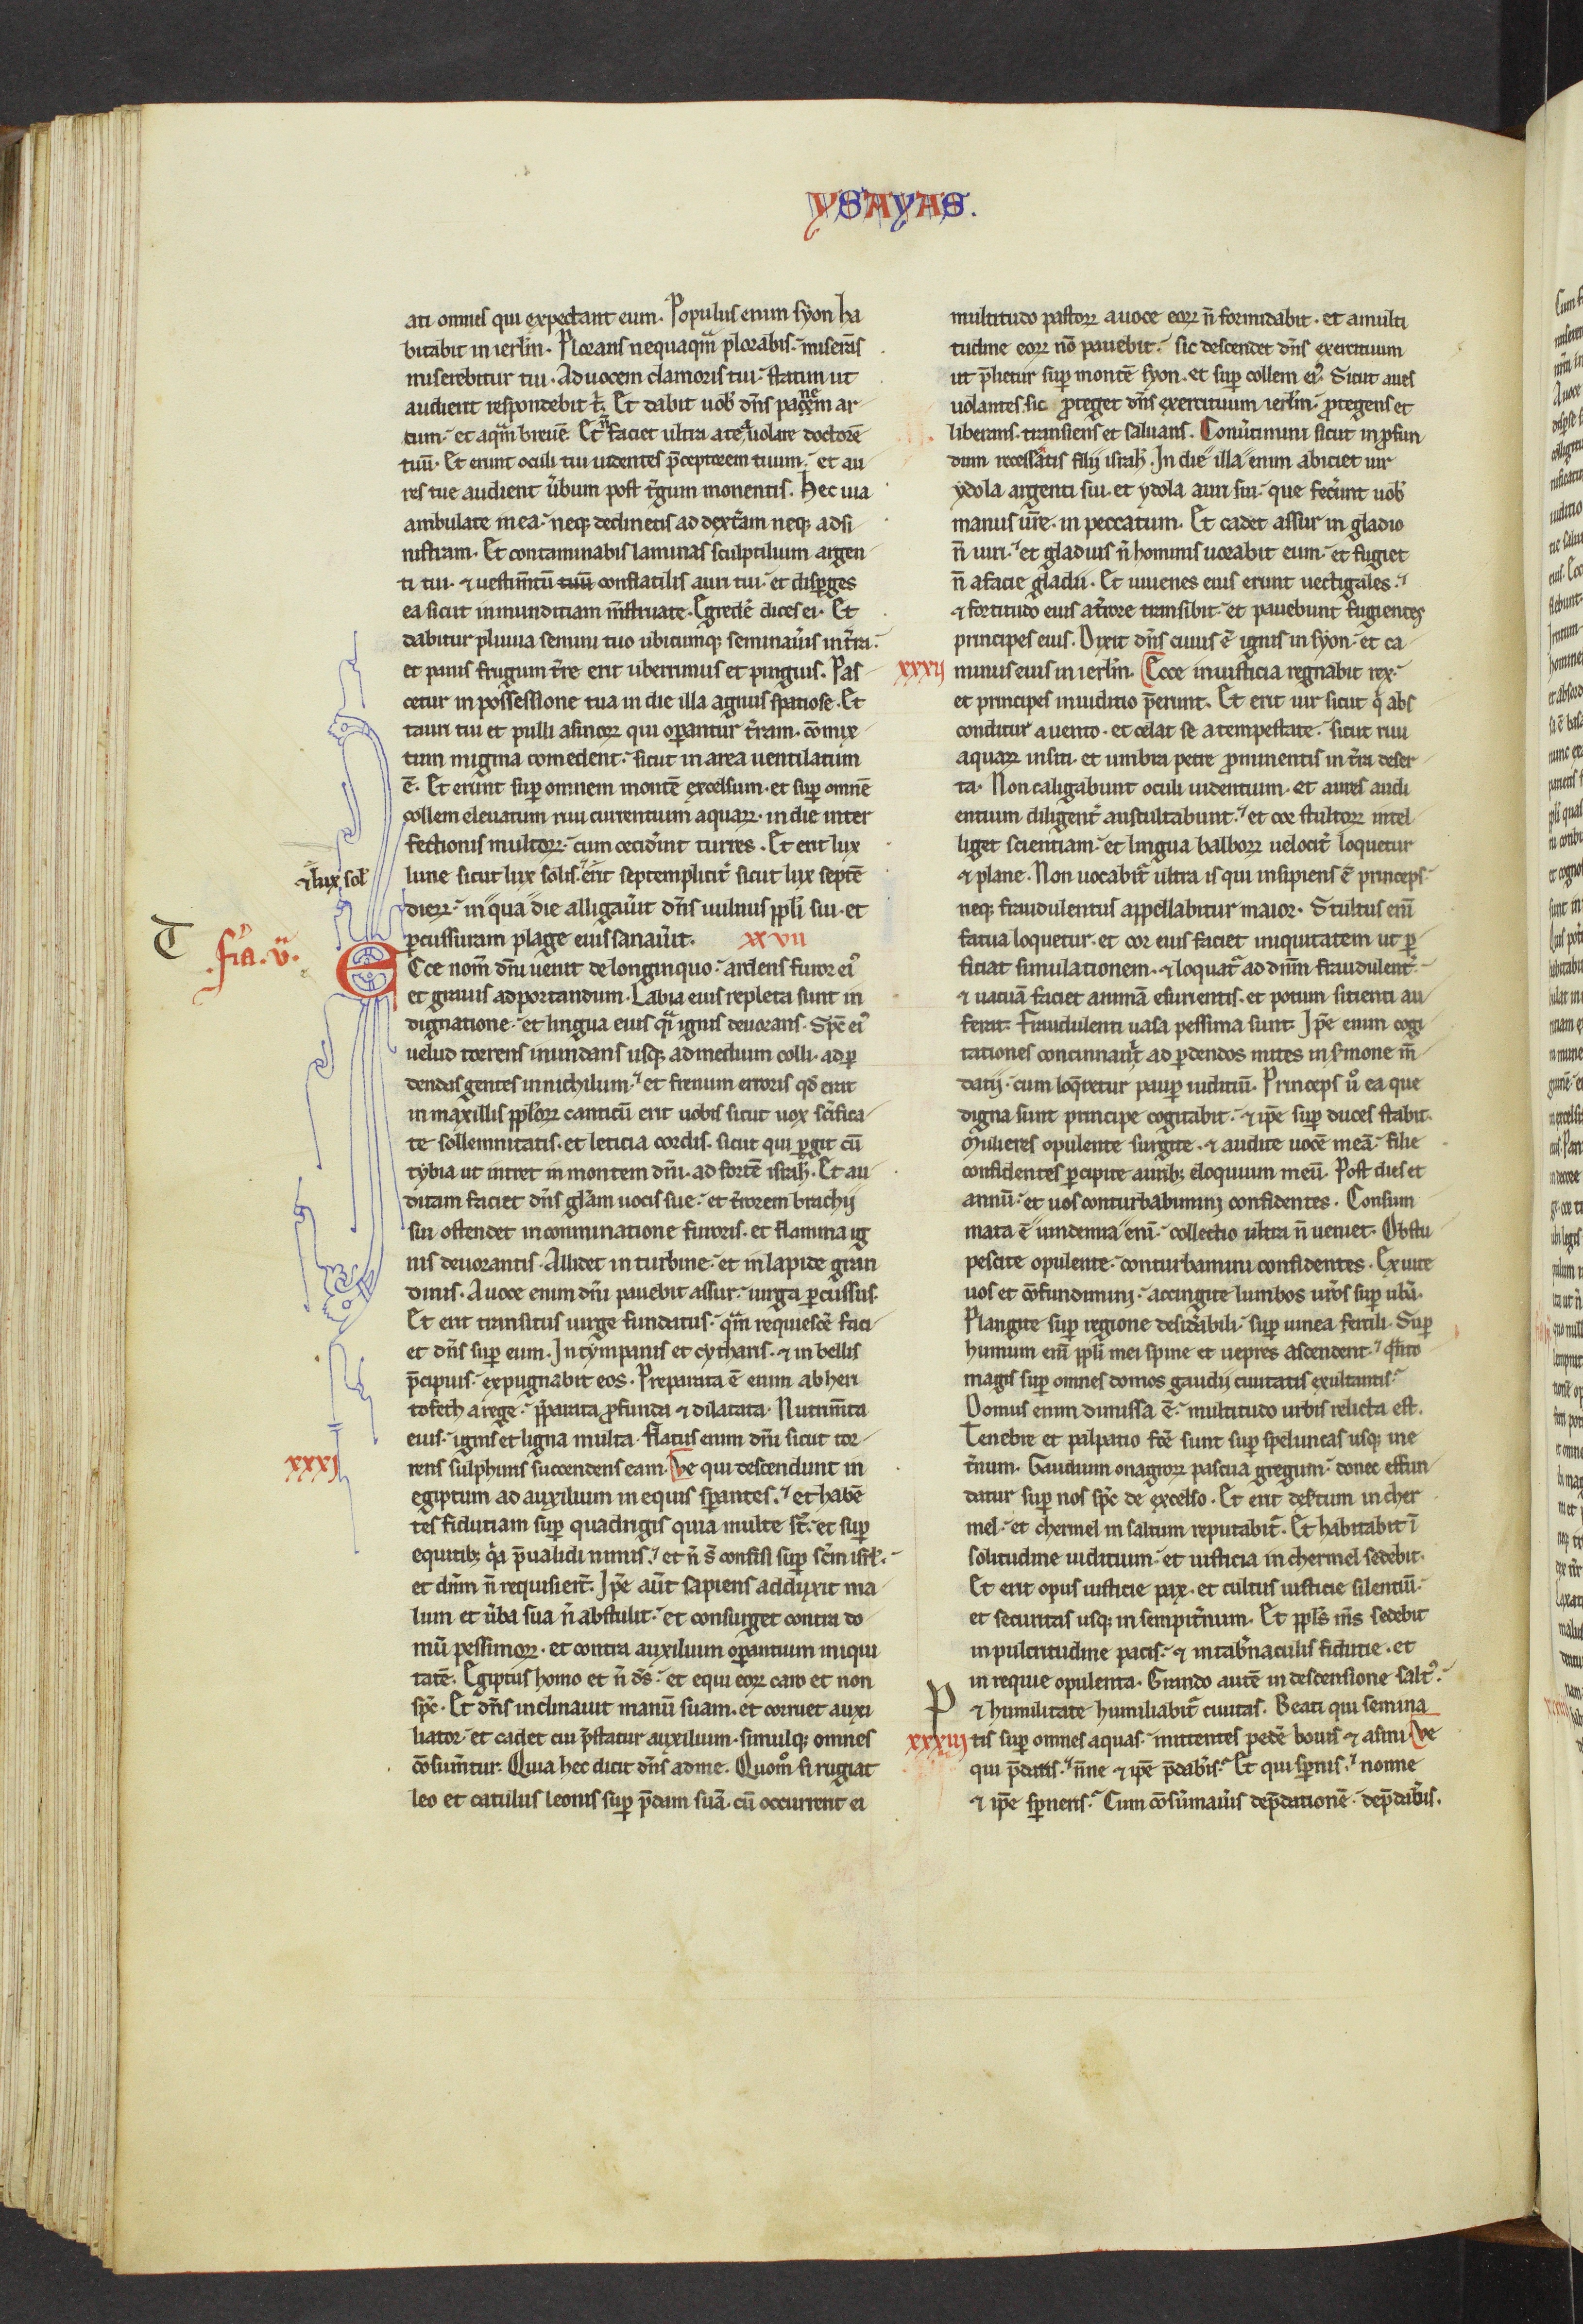 YSAYAS.
ati omnes qui expectant eum. Populus enim syon ha
bitabit in ierlm̄. Plorans nequaqᵃm plorabis. miserans
miserebitur tui. Ad uocem clamoris tui. statim ut
audierit respondebit t̄. Et dabit uob̾ dn̄s panem ar
tum. et aqᵃm breuē. Et n̄ faciet ultra a te auolare doctorē
tuū. Et erunt oculi tui uidentes p̄ceptorem tuum. et au
res tue audient u̾bum post t̾gum monentis. Hec uia
ambulate in ea. neqꝫ declinetis ad dext̾am neqꝫ ad si
nistram. Et contaminabis laminas sculptilium argen
ti tui. ⁊ uestim̄tū tuū conflatilis auri tui. et disꝑges
ea sicut inmunditiam m̄struate. Egredē dices ei. Et
dabitur pluuia semini tuo ubicumqꝫ seminau̾is in t̾ra.
et panis frugum t̾re erit uberrimus et pinguis. Pas
cetur in possessione tua in die illa agnus spatiose. Et
tauri tui et pulli asinoꝝ qui oꝑantur t̾ram. cōmix
tum migma comedent. sicut in area uentilatum
ē. Et erunt suꝑ omnem montē excelsum. et suꝑ omnē
collem eleuatum riui currentium aquaꝝ. in die inter
fectionis multoꝝ. cum cecid̾int turres. Et erit lux
lune sicut lux solis. erit septemplicit̾ sicut lux septē
⁊ lux sol̾
dieꝝ. in qua die alligau̾it dn̄s uulnus ppl̄i sui. et
ꝑcussuram plage eius sanau̾it. xxvii
T
.fr̄a.v̄.
Ecce nom̄ dn̄i uenit de longinquo. ardens furor ei᾽
et grauis ad portandum. Labia eius repleta sunt in
dignatione. et lingua eius qᵃi ignis deuorans. Spc̄ ei᾽
uelud torrens inundans usqꝫ ad medium colli. ad ꝑ
dendas gentes in nichilum. et frenum erroris qd̾ erat
in maxillis ppl̄oꝝ canticū erit uobis sicut uox sc̄ifica
te sollemnitatis. et leticia cordis. sicut qui ꝑgit cū
tybia ut intret in montem dn̄i. ad fortē isrl̄. Et au
ditam faciet dn̄s gl̄am uocis sue. et t̾rorem brachij
sui ostendet in comminatione furoris. et flamma ig
nis deuorantis. Allidet in turbine. et in lapide gran
dinis. A uoce enim dn̄i pauebit assur. uirga ꝑcussus.
Et erit transitus uirge fundatus. qᵃm requiescē faci
et dn̄s suꝑ eum. In tympanis et cytharis. ⁊ in bellis
p̄cipuis. expugnabit eos. Preparata ē enim ab heri
tofeth a rege. p̄parata ꝓfunda ⁊ dilatata. Nutrim̄ta
eius. ignis et ligna multa. flatus enim dn̄i sicut tor
xxxj
rens sulphuris succendens eam. Ve qui descendunt in
egiptum ad auxilium in equis sꝑantes. et habē
tes fidutiam suꝑ quadrigis quia multe st̄. et suꝑ
equitibꝫ qᵃ p̄ualidi nimis. et n̄ s̄ confisi suꝑ sc̄m isrl̄.
et dn̄m n̄ requisiert̄. Ip̄e aut̄ sapiens adduxit ma
lum et u̾ba sua n̄ abstulit. et consurget contra do
mū pessimoꝝ. et contra auxilium oꝑantium iniqui
tatē. Egiptus homo et n̄ ds̄. et equi eoꝝ caro et non
spc̄. Et dn̄s inclinauit manū suam. et corruet auxi
liator. et cadet cui p̄statur auxilium. simulqꝫ omnes
cōsum̄tur. Quia hec dicit dn̄s ad me. Quomᵒ si rugiat
leo et catulus leonis suꝑ p̄dam suā. cū occurrent ei
multitudo pastoꝝ a uoce eoꝝ n̄ formidabit. et a multi
tudine eoꝝ nō pauebit. sic descendet dn̄s exercituum
ut p̄lietur suꝑ montē syon. et suꝑ collem ei᾽. Sicut aues
uolantes. sic ꝓteget dn̄s exercituum ierlm̄. ꝓtegens et
liberans. transiens et saluans. Conu̾timini sicut in ꝓfun
dum recessatis filij isrl̄. In die illa enim abiciet uir
ydola argenti sui. et ydola auri sui. que fec̾unt uob̾
manus ur̄e. in peccatum. Et cadet assur in gladio
n̄ uiri. et gladius n̄ hominis uorabit eum. et fugiet
n̄ a facie gladii. Et iuuenes eius erunt uectigales.
⁊ fortitudo eius a t̾rore transibit. et pauebunt fugientes
principes eius. Dixit dn̄s cuius ē ignis in syon. et ca
xxxij
minus eius in ierlm̄. Ecce in iusticia regnabit rex.
et principes in iuditio p̄erunt. Et erit uir sicut qⁱ abs
conditur a uento. et celat se a tempestate. sicut riui
aquaꝝ in siti. et umbra petre ꝓminentis in t̾ra deser
ta. Non caligabunt oculi uidentium. et aures audi
entium diligent̾ auscultabunt. et cor stultoꝝ intel
liget scientiam. et lingua balboꝝ uelocit̾ loquetur
⁊ plane. Non uocabit̾ ultra is qui insipiens ē princeps.
neqꝫ fraudulentus appellabitur maior. Stultus enī
fatua loquetur. et cor eius faciet iniquitatem ut ꝑ
ficiat simulationem. ⁊ loquat̾ ad dn̄m fraudulent̾.
⁊ uacuā faciet animā esurientis. et potum sitienti au
ferat. Fraudulenti uasa pessima sunt. Ip̄e enim cogi
tationes concinnaut̾ ad ꝑdendos mites in s̾mone m̄
datij. cum loq̄retur pauꝑ iuditiū. Princeps uᵒ ea que
digna sunt principe cogitabit. ⁊ ip̄e suꝑ duces stabit.
Mulieres opulente surgite. ⁊ audite uocē meā. filie
confidentes ꝑcipite auribꝫ eloquium meū. Post dies et
annū. et uos conturbabimini confidentes. Consum
mata ē uindemia enī. collectio ultra n̄ ueniet. Obstu
pescite opulente. conturbamini confidentes. Exuite
uos et cōfundimini. accingite lumbos ur̄os suꝑ ub̾a.
Plangite suꝑ regione desid̾abili. suꝑ uinea fertili. Suꝑ
humum enī ppl̄i mei spine et uepres ascendent. qᵃnto
magis suꝑ omnes domos gaudij ciuitatis exultantis.
Domus enim dimissa ē. multitudo urbis relicta est.
Tenebre et palpatio fc̄e sunt suꝑ speluncas usqꝫ in e
t̾num. Gaudium onagroꝝ pascua gregum. donec effun
datur suꝑ nos spc̄ de excelso. Et erit des̾tum in cher
mel. et chermel in saltum reputabit̾. Et habitabit ī
solitudine iuditium. et iusticia in chermel sedebit.
Et erit opus iusticie pax. et cultus iusticie silentiū.
et securitas usqꝫ in sempit̾num. Et ppl̄s m̄s sedebit
in pulcritudine pacis. ⁊ in tab̾naculis fidutie. et
in requie opulenta. Grando autē in descensione salt᾽.
P
⁊ humilitate humiliabit̾ ciuitas. Beati qui semina
xxxiij
tis suꝑ omnes aquas. mittentes pedē bouis ⁊ asini. Ve
qui p̄daris. n̄ne ⁊ ip̄e p̄dab̾is. Et qui sꝑnis. nonne
⁊ ip̄e sꝑneris. Cum cōsūmau̾is dep̄dationē. dep̄dab̾is.